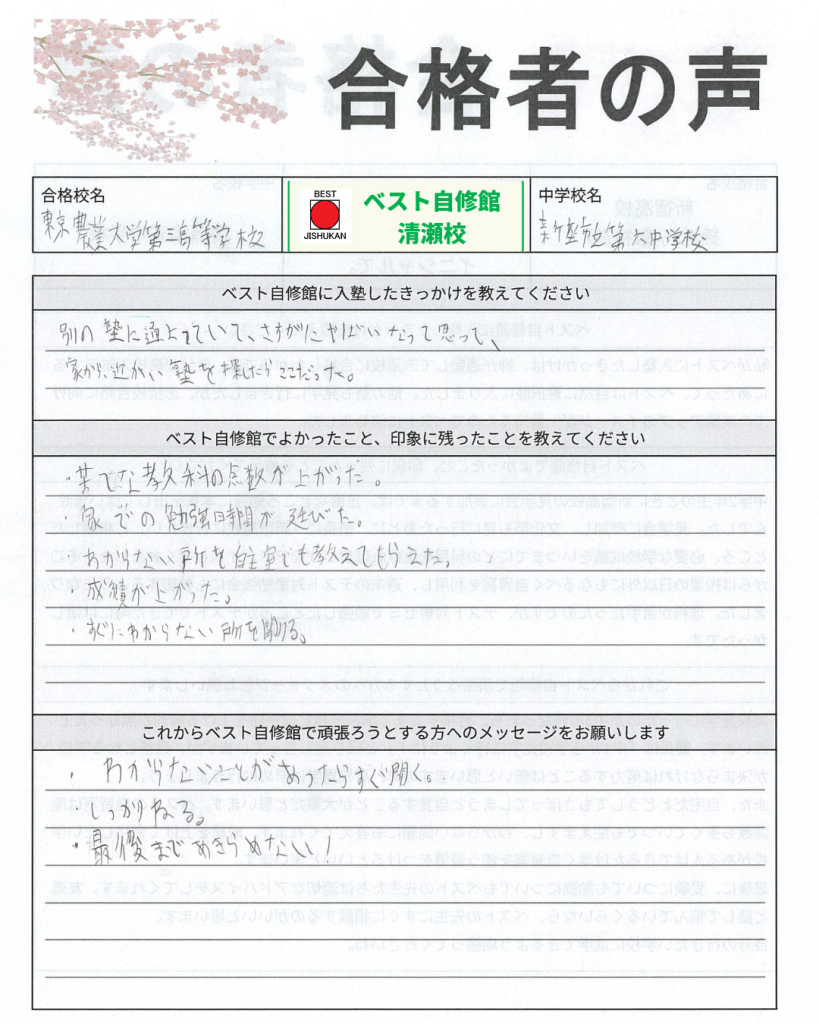 合格者の声
合格校名
東京農業大学第三高等学校
BEST
JISHUKAN
ベスト自修館
清瀬校
中学校名
新座市立第六中学校
ベスト自修館に入塾したきっかけを教えてください
別の塾に通よっていて、さすがにやばいなって思って、
家から近かい塾を探したらここだった。
ベスト自修館でよかったこと、印象に残ったことを教えてください
・苦手な教科の点数が上がった。
・家での勉強時間が延びた。
・わからない所を自主室でも教えてもらえた。
・成績が上がった。
・すぐにわからない所を聞ける。
これからベスト自修館で頑張ろうとする方へのメッセージをお願いします
・わからないことがあったらすぐ聞く。
・しっかりねる。
・最後まであきらめなしい!